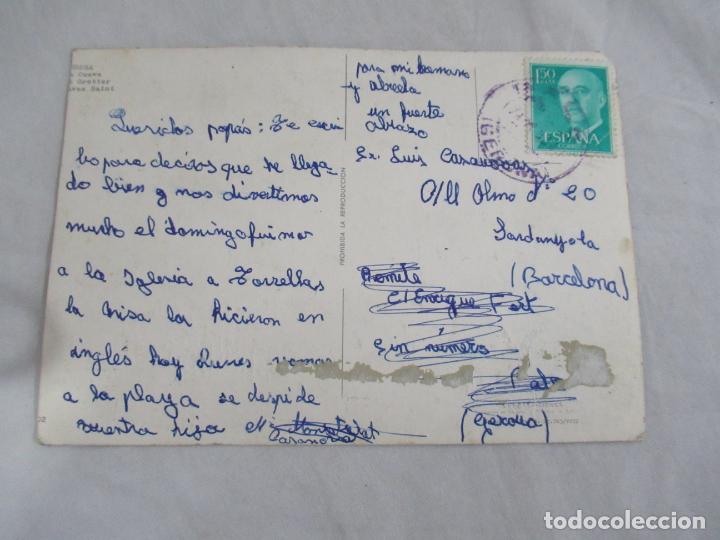 Cueva
Grotter
Saint
Queridos papás: Te escri
bo para deciros que he llega-
do bien y nos divertimos
mucho el domingo fuimos
a la Iglesia a Torrellas
la misa la hicieron en
inglés hoy Lunes vamos
a la playa se despide
vuestra hija Mª
Casanova
PROHIBIDA LA REPRODUCCIÓN
para mi hermano
y abuela
un fuerte
abrazo
1,50
ESPAÑA
CORREOS
Sr. Luis Casanovas
C/ll Olmo nº 20
Sardanyola
(Barcelona)
Remite
C/ Enrique Fort
Sin número
(Gerona)
todocoleccion.net